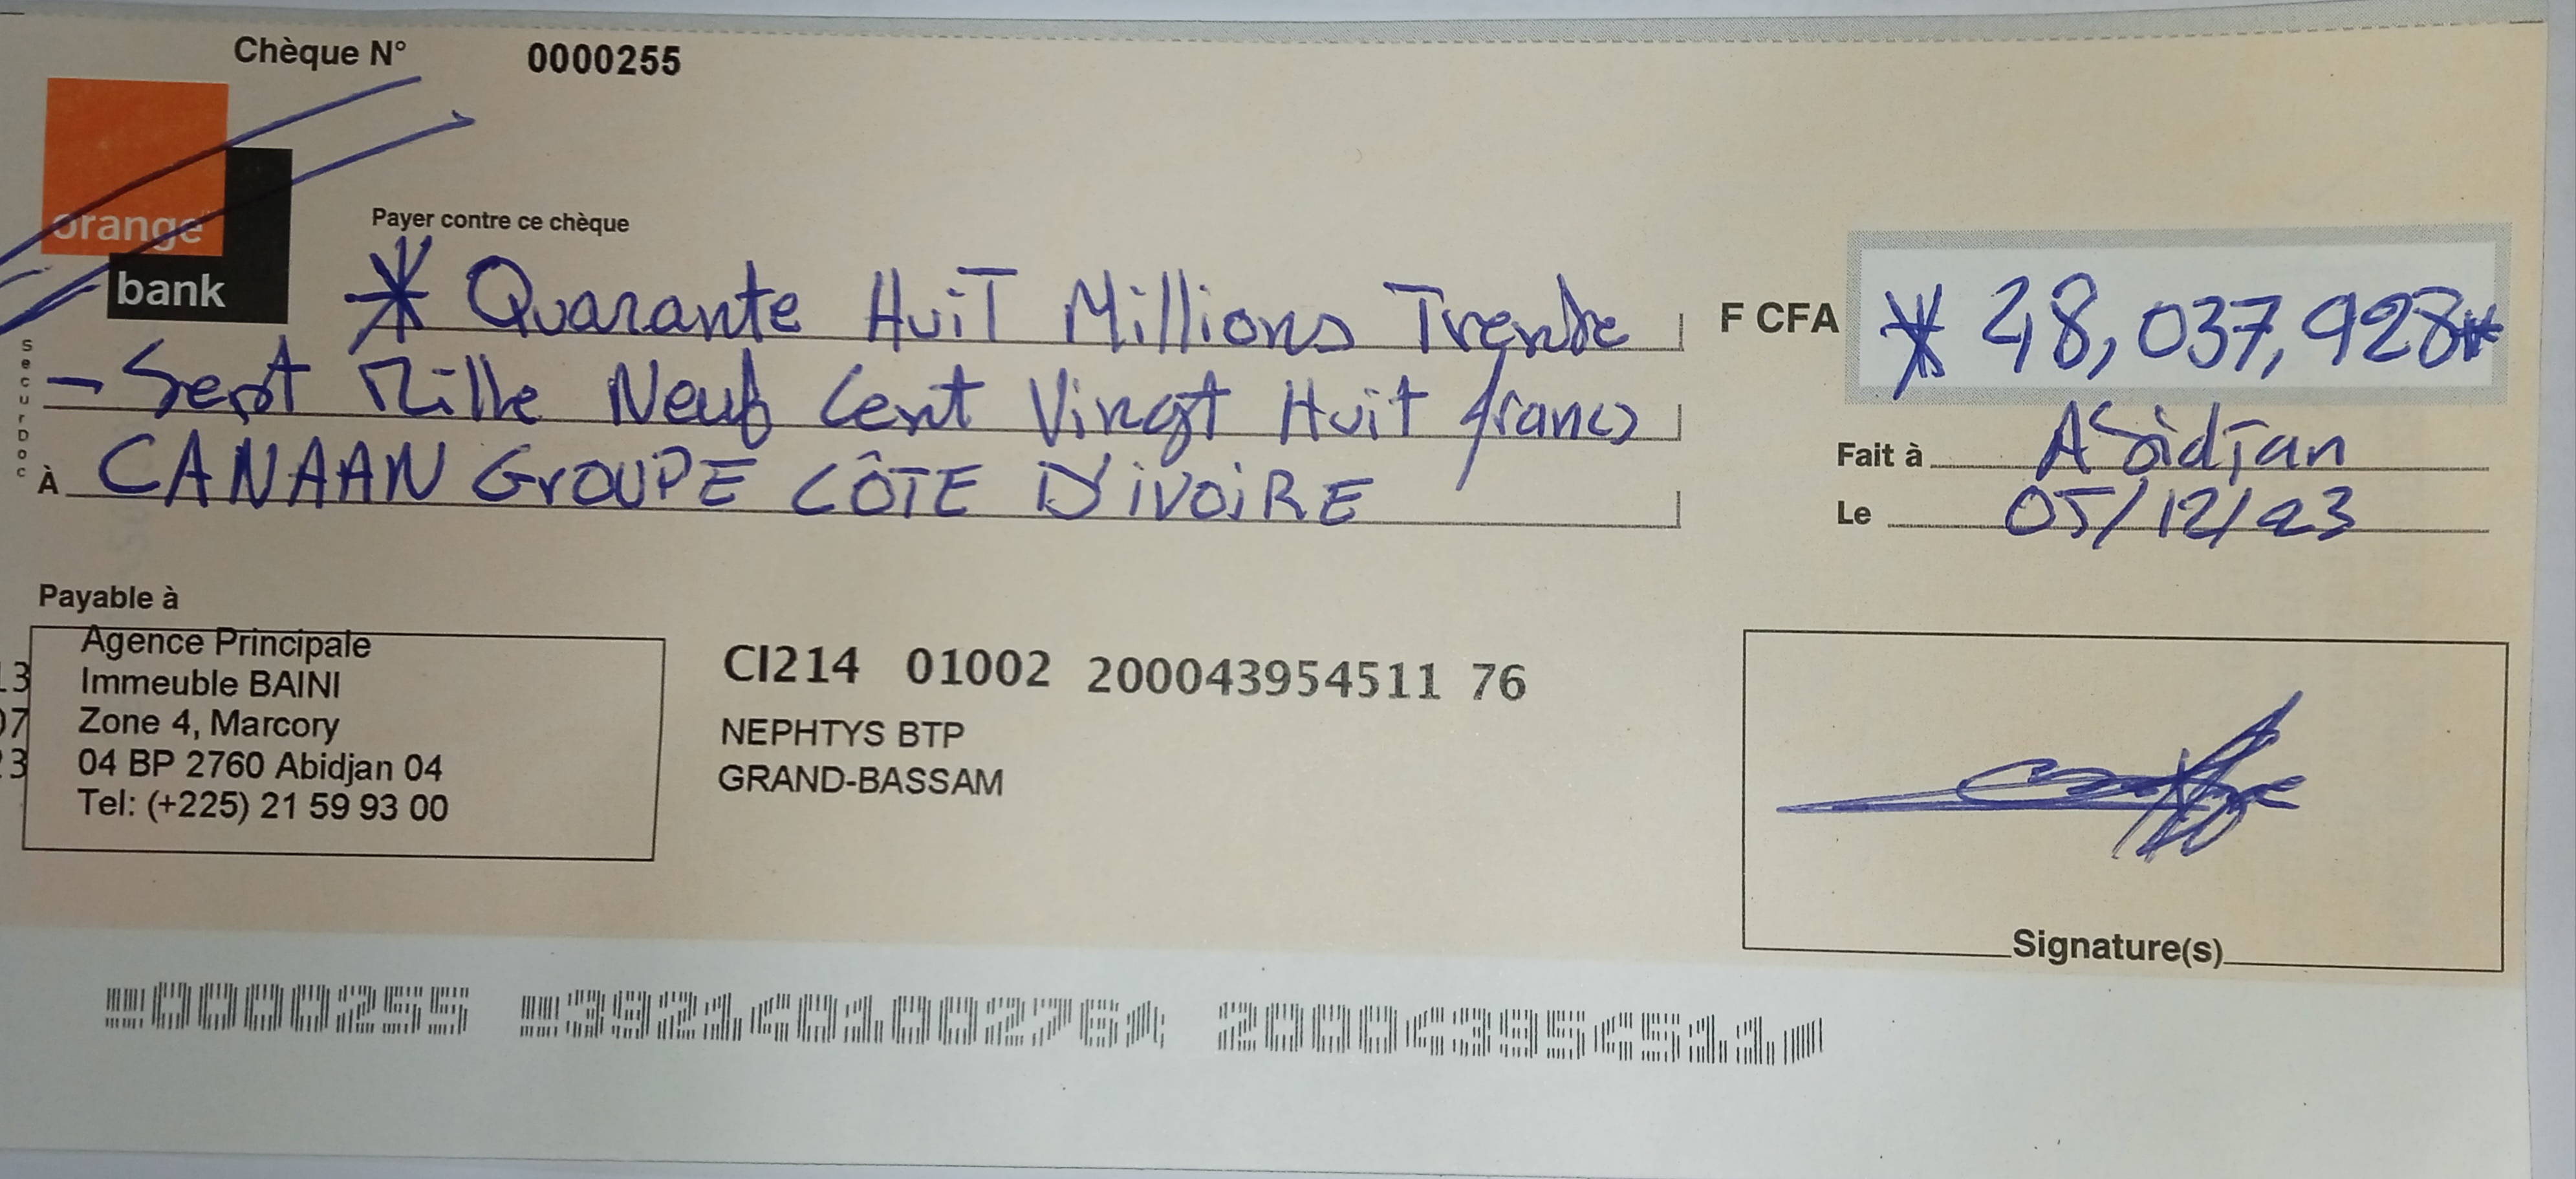 Chèque N° 0000255
orange
bank
Payer contre ce chèque
* Quarante Huit Millions Trente
F CFA * 48,037,928*
- Sept Mille Neuf Cent Vingt Huit francs
À CANAAN GROUPE CÔTE D'IVOIRE
SecurDoc
Fait à Abidjan
Le 05/12/23
Payable à
Agence Principale
Immeuble BAINI
Zone 4, Marcory
04 BP 2760 Abidjan 04
Tel: (+225) 21 59 93 00
CI214 01002 200043954511 76
NEPHTYS BTP
GRAND-BASSAM
Signature(s)
0000255 392140100276 200043954511